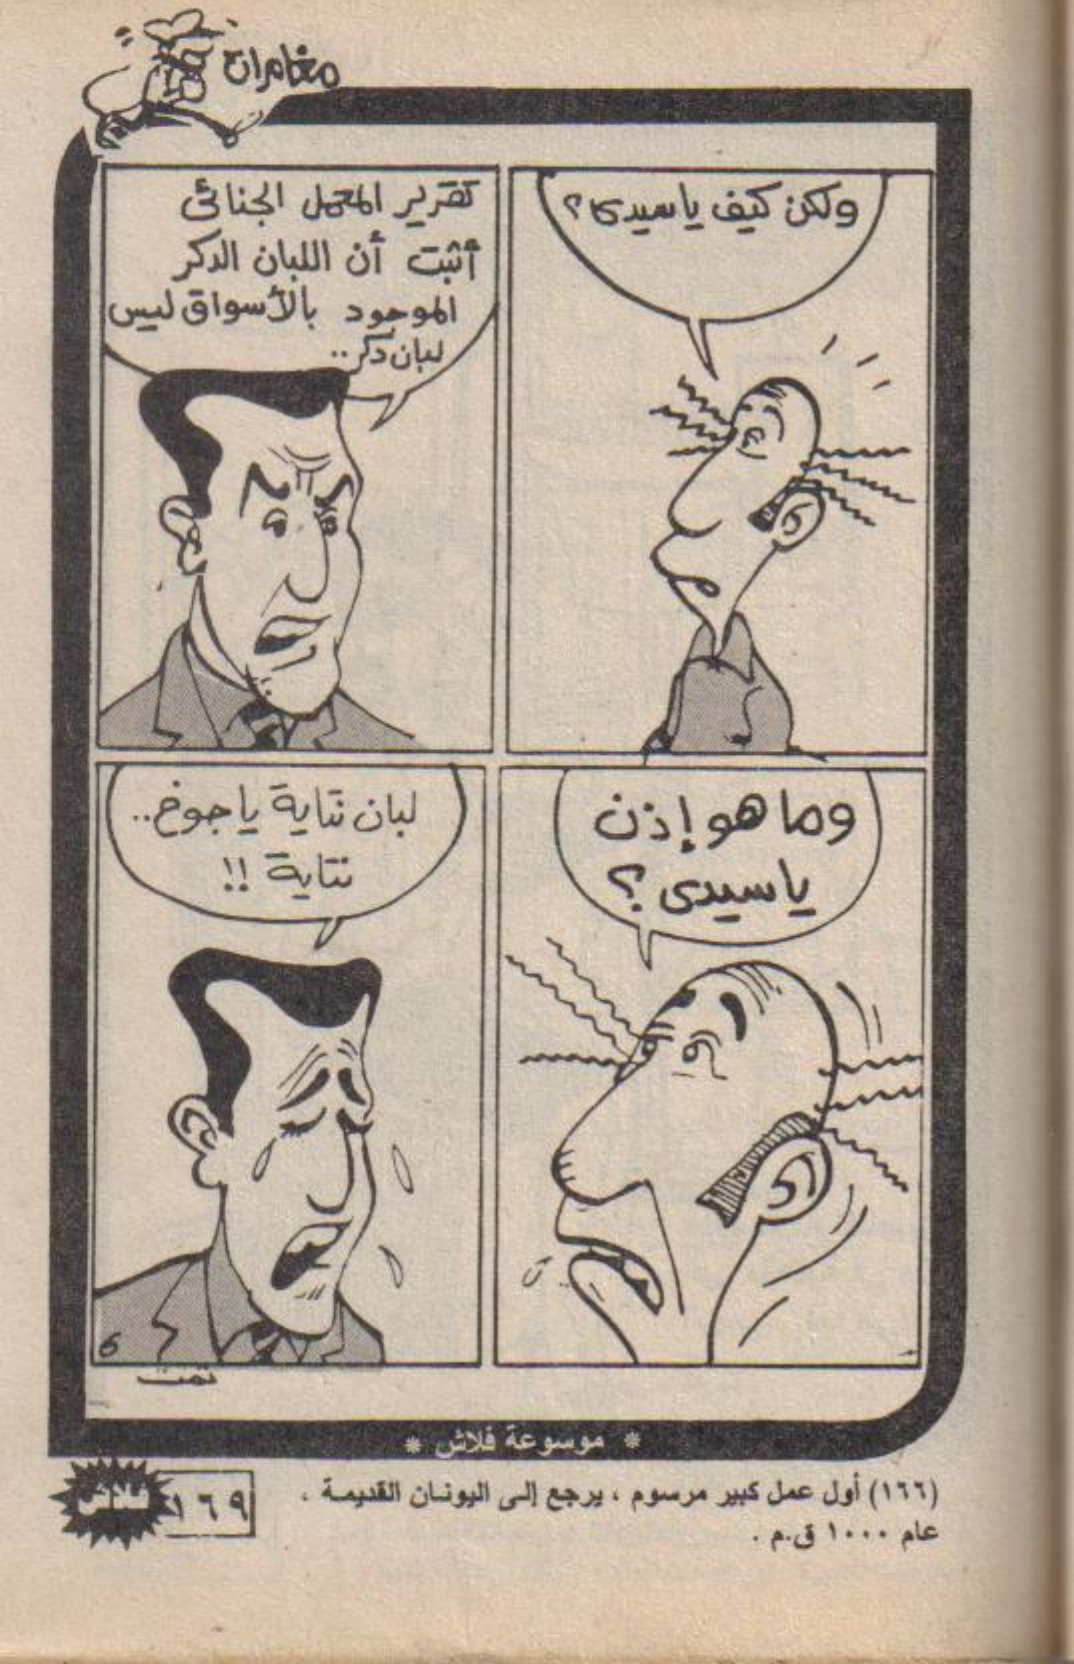 مغامرات
ولكن كيف ياسيدى؟
تقرير المعمل الجنائى
أثبت أن اللبان الدكر
الموجود بالأسواق ليس
لبان دكر..
وما هو إذن
ياسيدى؟
لبان نتاية ياجوخ..
نتاية !!
6
تمت
* موسوعة فلاش *
(١٦٦) أول عمل كبير مرسوم ، يرجع إلى اليونان القديمة ،
عام ١٠٠٠ ق.م .
١٦٩
فلاش